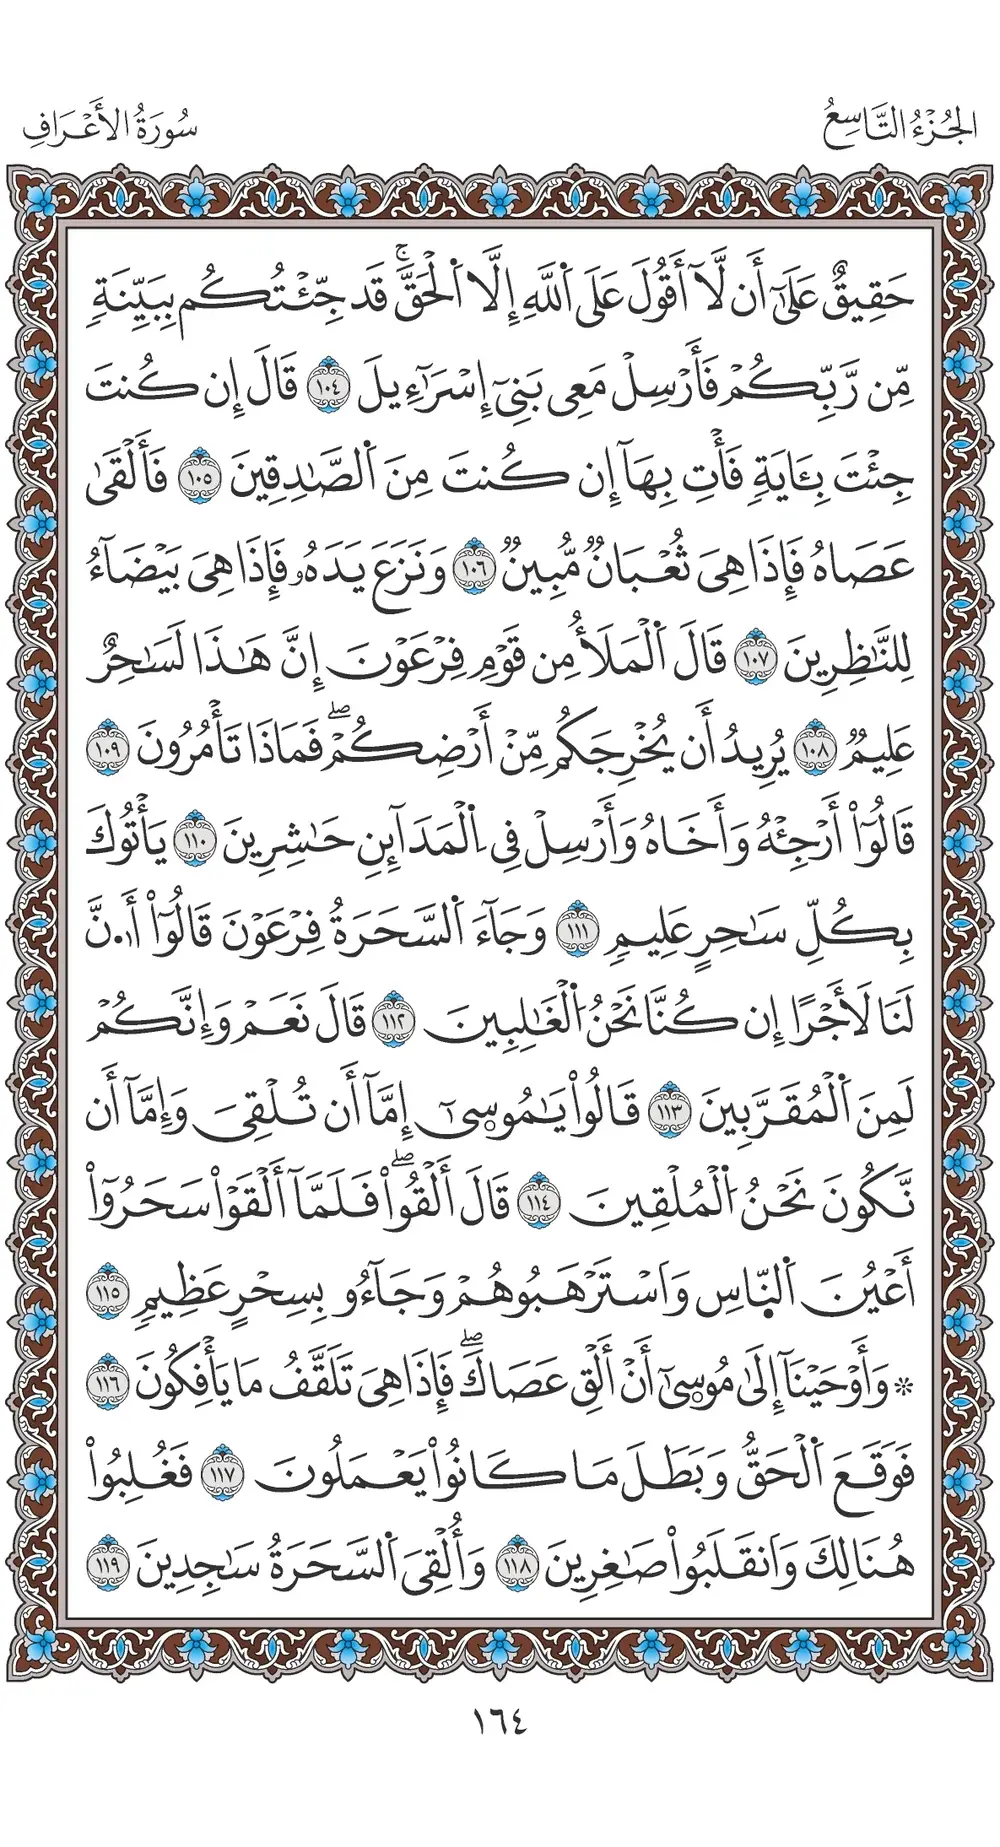 الجُزْءُ التَّاسِعُ
سُورَةُ الأَعْرَافِ
حَقِيقٌ عَلَىٰٓ أَن لَّآ أَقُولَ عَلَى ٱللَّهِ إِلَّا ٱلْحَقَّۚ قَد جِّئْتُكُم بِبَيِّنَةٍ
مِّن رَّبِّكُمْ فَأَرْسِلْ مَعِى بَنِىٓ إِسْرَٰٓءِيلَ ١٠٤ قَالَ إِن كُنتَ
جِئْتَ بِـَٔايَةٍ فَأْتِ بِهَآ إِن كُنتَ مِنَ ٱلصَّـٰدِقِينَ ١٠٥ فَأَلْقَىٰ
عَصَاهُ فَإِذَا هِىَ ثُعْبَانٌ مُّبِينٌ ١٠٦ وَنَزَعَ يَدَهُۥ فَإِذَا هِىَ بَيْضَآءُ
لِلنَّـٰظِرِينَ ١٠٧ قَالَ ٱلْمَلَأُ مِن قَوْمِ فِرْعَوْنَ إِنَّ هَـٰذَا لَسَـٰحِرٌ
عَلِيمٌ ١٠٨ يُرِيدُ أَن يُخْرِجَكُم مِّنْ أَرْضِكُمْۖ فَمَاذَا تَأْمُرُونَ ١٠٩
قَالُوٓا۟ أَرْجِئْهُ وَأَخَاهُ وَأَرْسِلْ فِى ٱلْمَدَآئِنِ حَـٰشِرِينَ ١١٠ يَأْتُوكَ
بِكُلِّ سَـٰحِرٍ عَلِيمٍ ١١١ وَجَآءَ ٱلسَّحَرَةُ فِرْعَوْنَ قَالُوٓا۟ أَ۟نَّ
لَنَا لَأَجْرًا إِن كُنَّا نَحْنُ ٱلْغَـٰلِبِينَ ١١٢ قَالَ نَعَمْ وَإِنَّكُمْ
لَمِنَ ٱلْمُقَرَّبِينَ ١١٣ قَالُوا۟ يَـٰمُوسَىٰٓ إِمَّآ أَن تُلْقِىَ وَإِمَّآ أَن
نَّكُونَ نَحْنُ ٱلْمُلْقِينَ ١١٤ قَالَ أَلْقُوا۟ۖ فَلَمَّآ أَلْقَوْا۟ سَحَرُوٓا۟
أَعْيُنَ ٱلنَّاسِ وَٱسْتَرْهَبُوهُمْ وَجَآءُو بِسِحْرٍ عَظِيمٍ ١١٥
* وَأَوْحَيْنَآ إِلَىٰ مُوسَىٰٓ أَنْ أَلْقِ عَصَاكَۖ فَإِذَا هِىَ تَلَقَّفُ مَا يَأْفِكُونَ ١١٦
فَوَقَعَ ٱلْحَقُّ وَبَطَلَ مَا كَانُوا۟ يَعْمَلُونَ ١١٧ فَغُلِبُوا۟
هُنَالِكَ وَٱنقَلَبُوا۟ صَـٰغِرِينَ ١١٨ وَأُلْقِىَ ٱلسَّحَرَةُ سَـٰجِدِينَ ١١٩
١٦٤